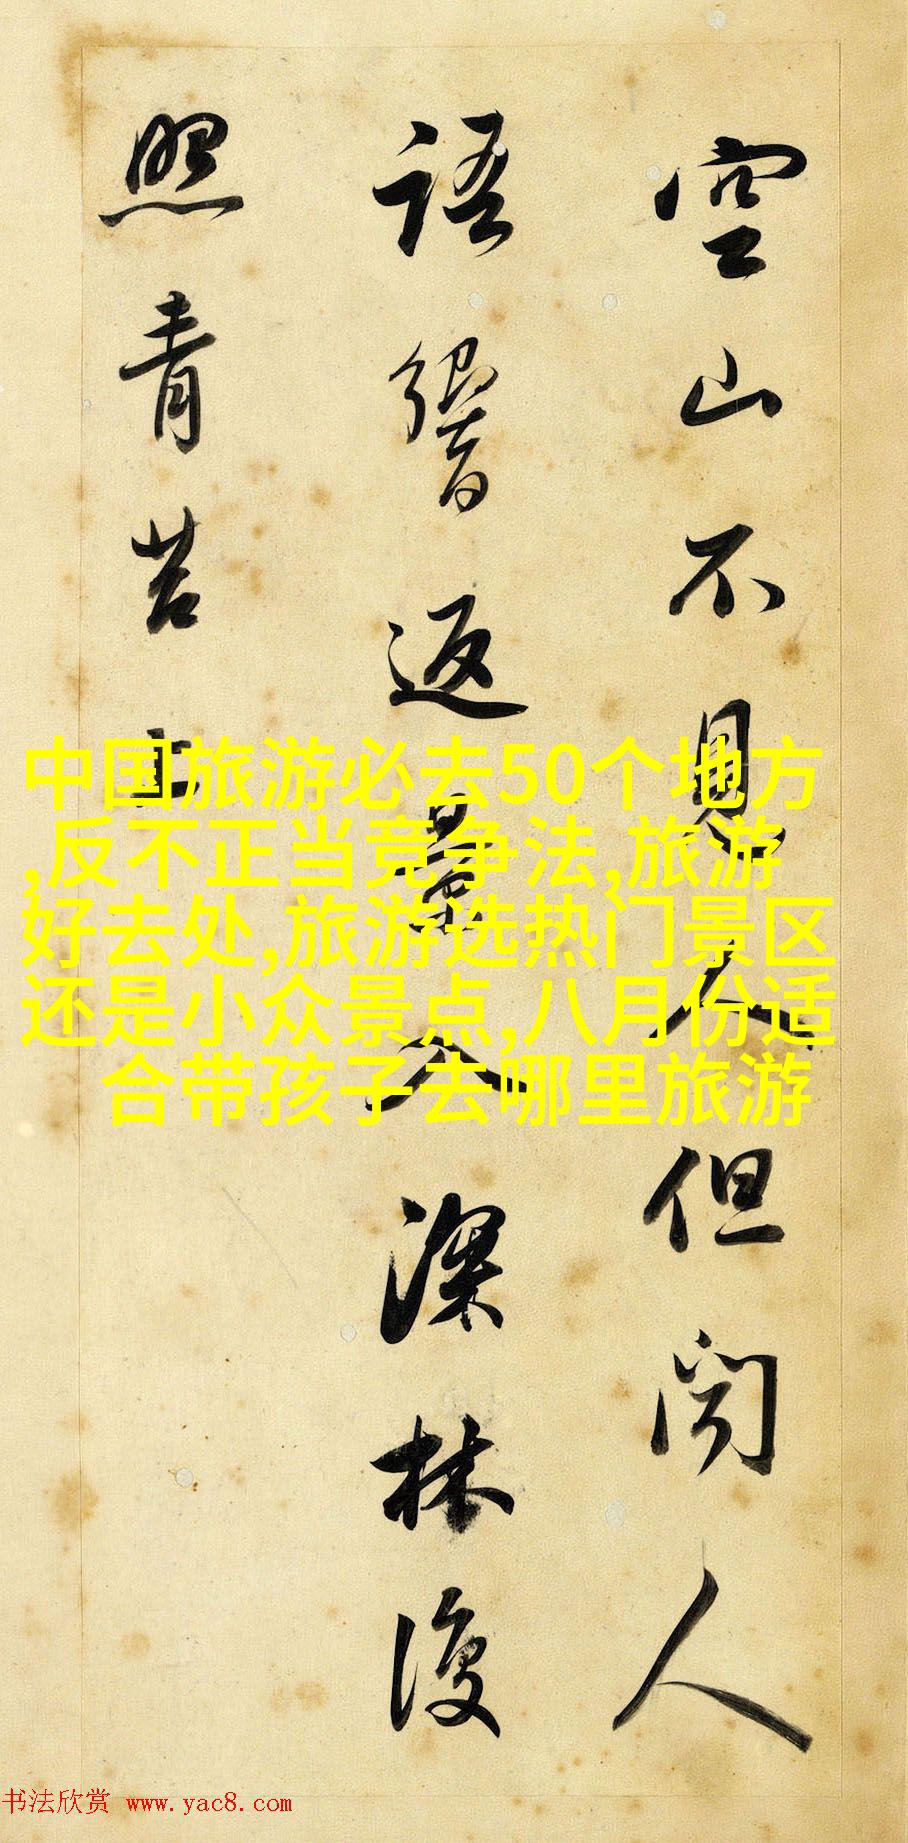 空山不見人但闻人
語響返景入深林復
照青苔上
中国旅游必去50个地方
,反不正当竞争法,旅游
好去处,旅游选热门景区
还是小众景点,八月份适
合带孩子去哪里旅游
书法欣赏 www.yac8.com